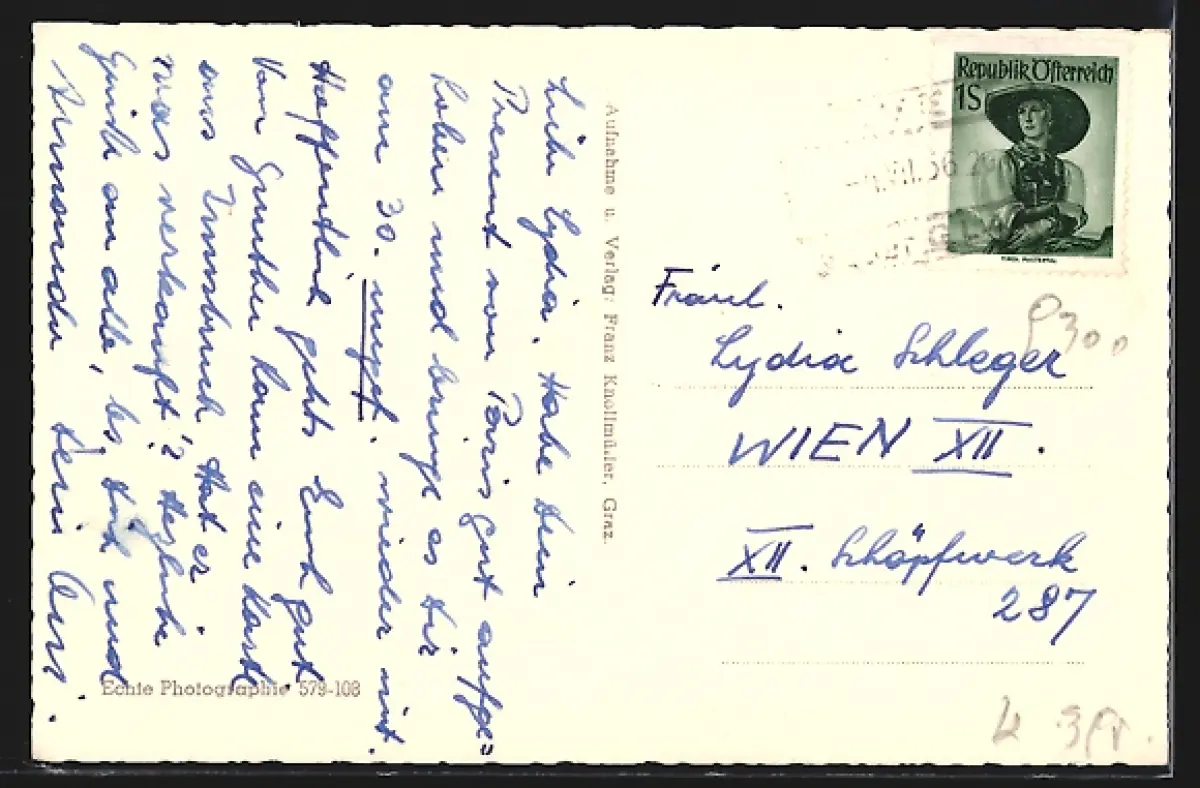 Liebe Lydia. Habe Dein
Present von Paris gut aufge=
hoben und bringe es Dir
am 30. wieder mit.
Hoffentlich gehts Euch gut
Von Gunther kam eine Karte
aus Innsbruck. Hat er
was verkauft?? Herzliche
Grüße an alle, bes. Dich und
Dein
Aufnahme u. Verlag: Franz Knollmüller, Graz.
Echte Photographie 579-108
Republik Österreich
1S
Fräul.
Lydia Schleger
WIEN XII.
XII. Schöpfwerk
287